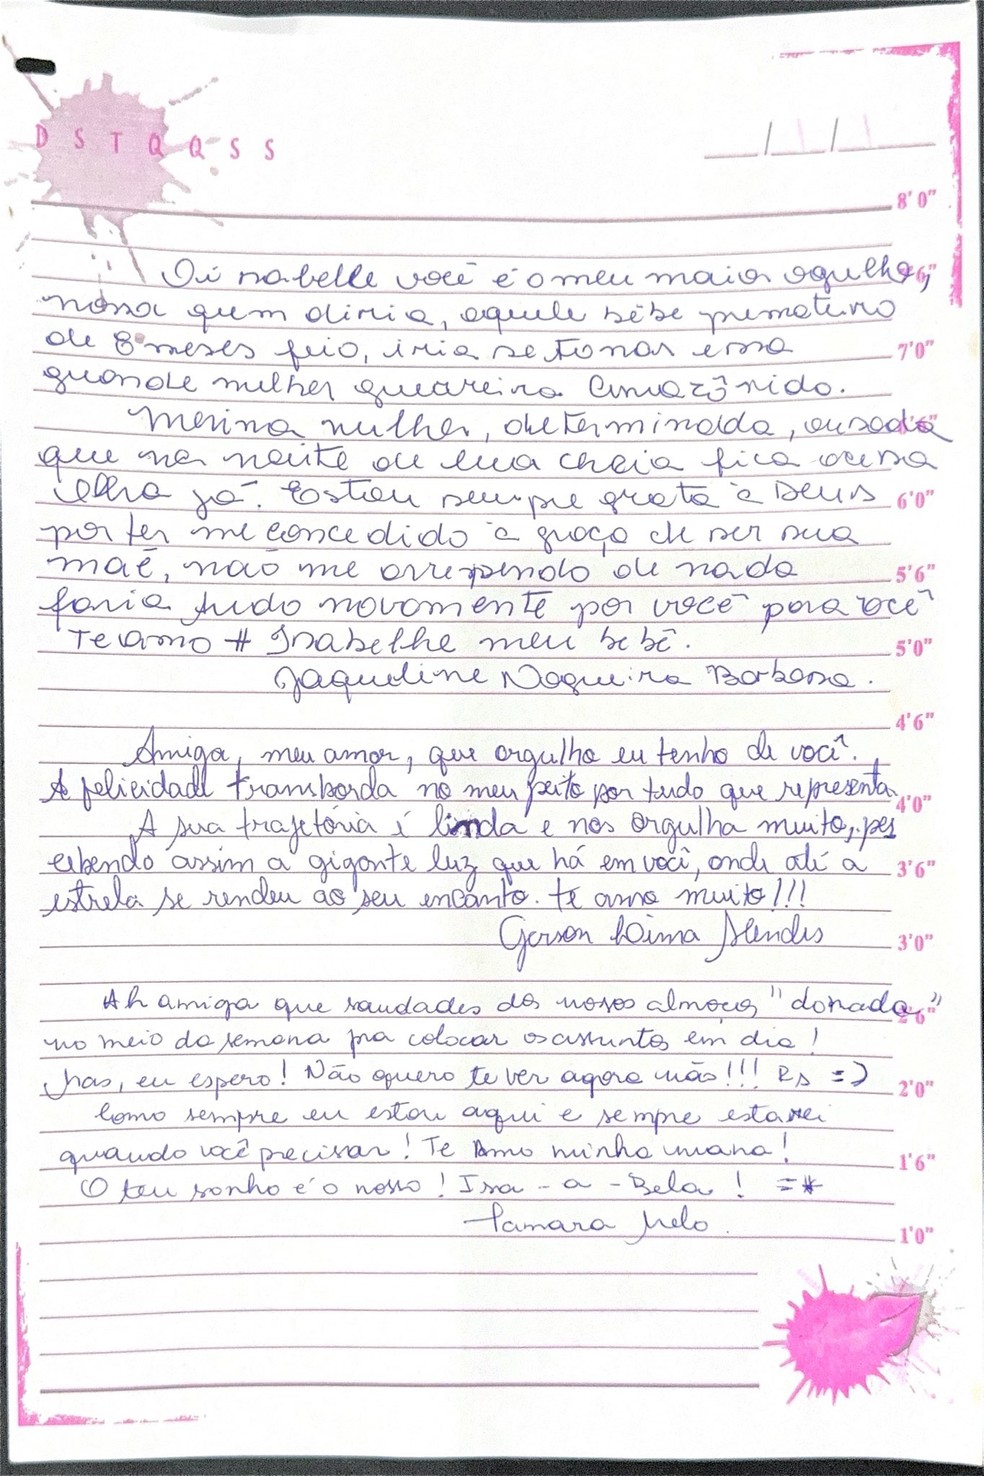 D S T Q Q S S
/ /
8'0"
Oi nabelle você é o meu maior ogulho,
nossa quem diria, aquele bêbe prematuro
de 8 meses feio, iria se tornar essa
7'0"
grande mulher guerreira Amazônida.
Menina mulher, determinada, ousada
que na noite de lua cheia fica dessa
Ilha já. Estou sempre grata à Deus
6'0"
por ter me concedido à graça de ser sua
maê, não me arrependo de nada
5'6"
faria tudo novamente por você para você
Te amo # Isabelhe meu bebê.
5'0"
Jaqueline Nogueira Barbosa.
4'6"
Amiga, meu amor, que orgulho eu tenho de você.
A felicidade transborda no meu peito por tudo que representa.
4'0"
A sua trajetória é linda e nos orgulha muito, per
cebendo assim a gigante luz que há em você, onde até a
3'6"
estrela se rendeu ao seu encanto. te amo muito!!!
Gerson Lima Mendes
3'0"
Ah amiga que saudades dos nosos almoços "donada"
2'6"
no meio da semana pra colocar os assuntos em dia!
Mas, eu espero! Não quero te ver agora não!!! Rs =)
2'0"
Como sempre eu estou aqui e sempre estarei
quando você precisar! Te Amo minha mana!
1'6"
O teu sonho é o nosso! Isa-a-Bela! =*
Tamara Melo.
1'0"